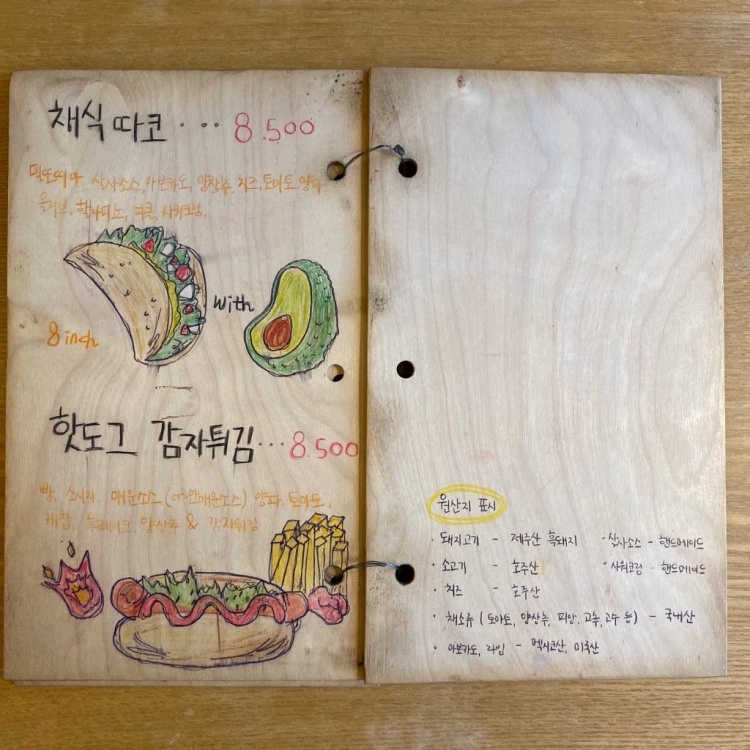 채식 따코 ... 8.500
또띠아 살사소스, 아보카도, 양상추, 치즈, 토마토, 양파
올리브, 할라피뇨, 피클, 사워크림,
with
8 inch
핫도그 감자튀김 ... 8.500
빵, 소시지, 매운소스 (or 안매운소스) 양파, 토마토,
케찹, 양상추 & 감자튀김
원산지 표시
· 돼지고기 - 제주산 흑돼지 · 살사소스 - 핸드메이드
· 소고기 - 호주산 · 사워크림 - 핸드메이드
· 치즈 - 호주산
· 채소류 (토마토, 양상추, 피망, 고추, 고수 등) - 국내산
· 아보카도, 라임 - 멕시코산, 미국산